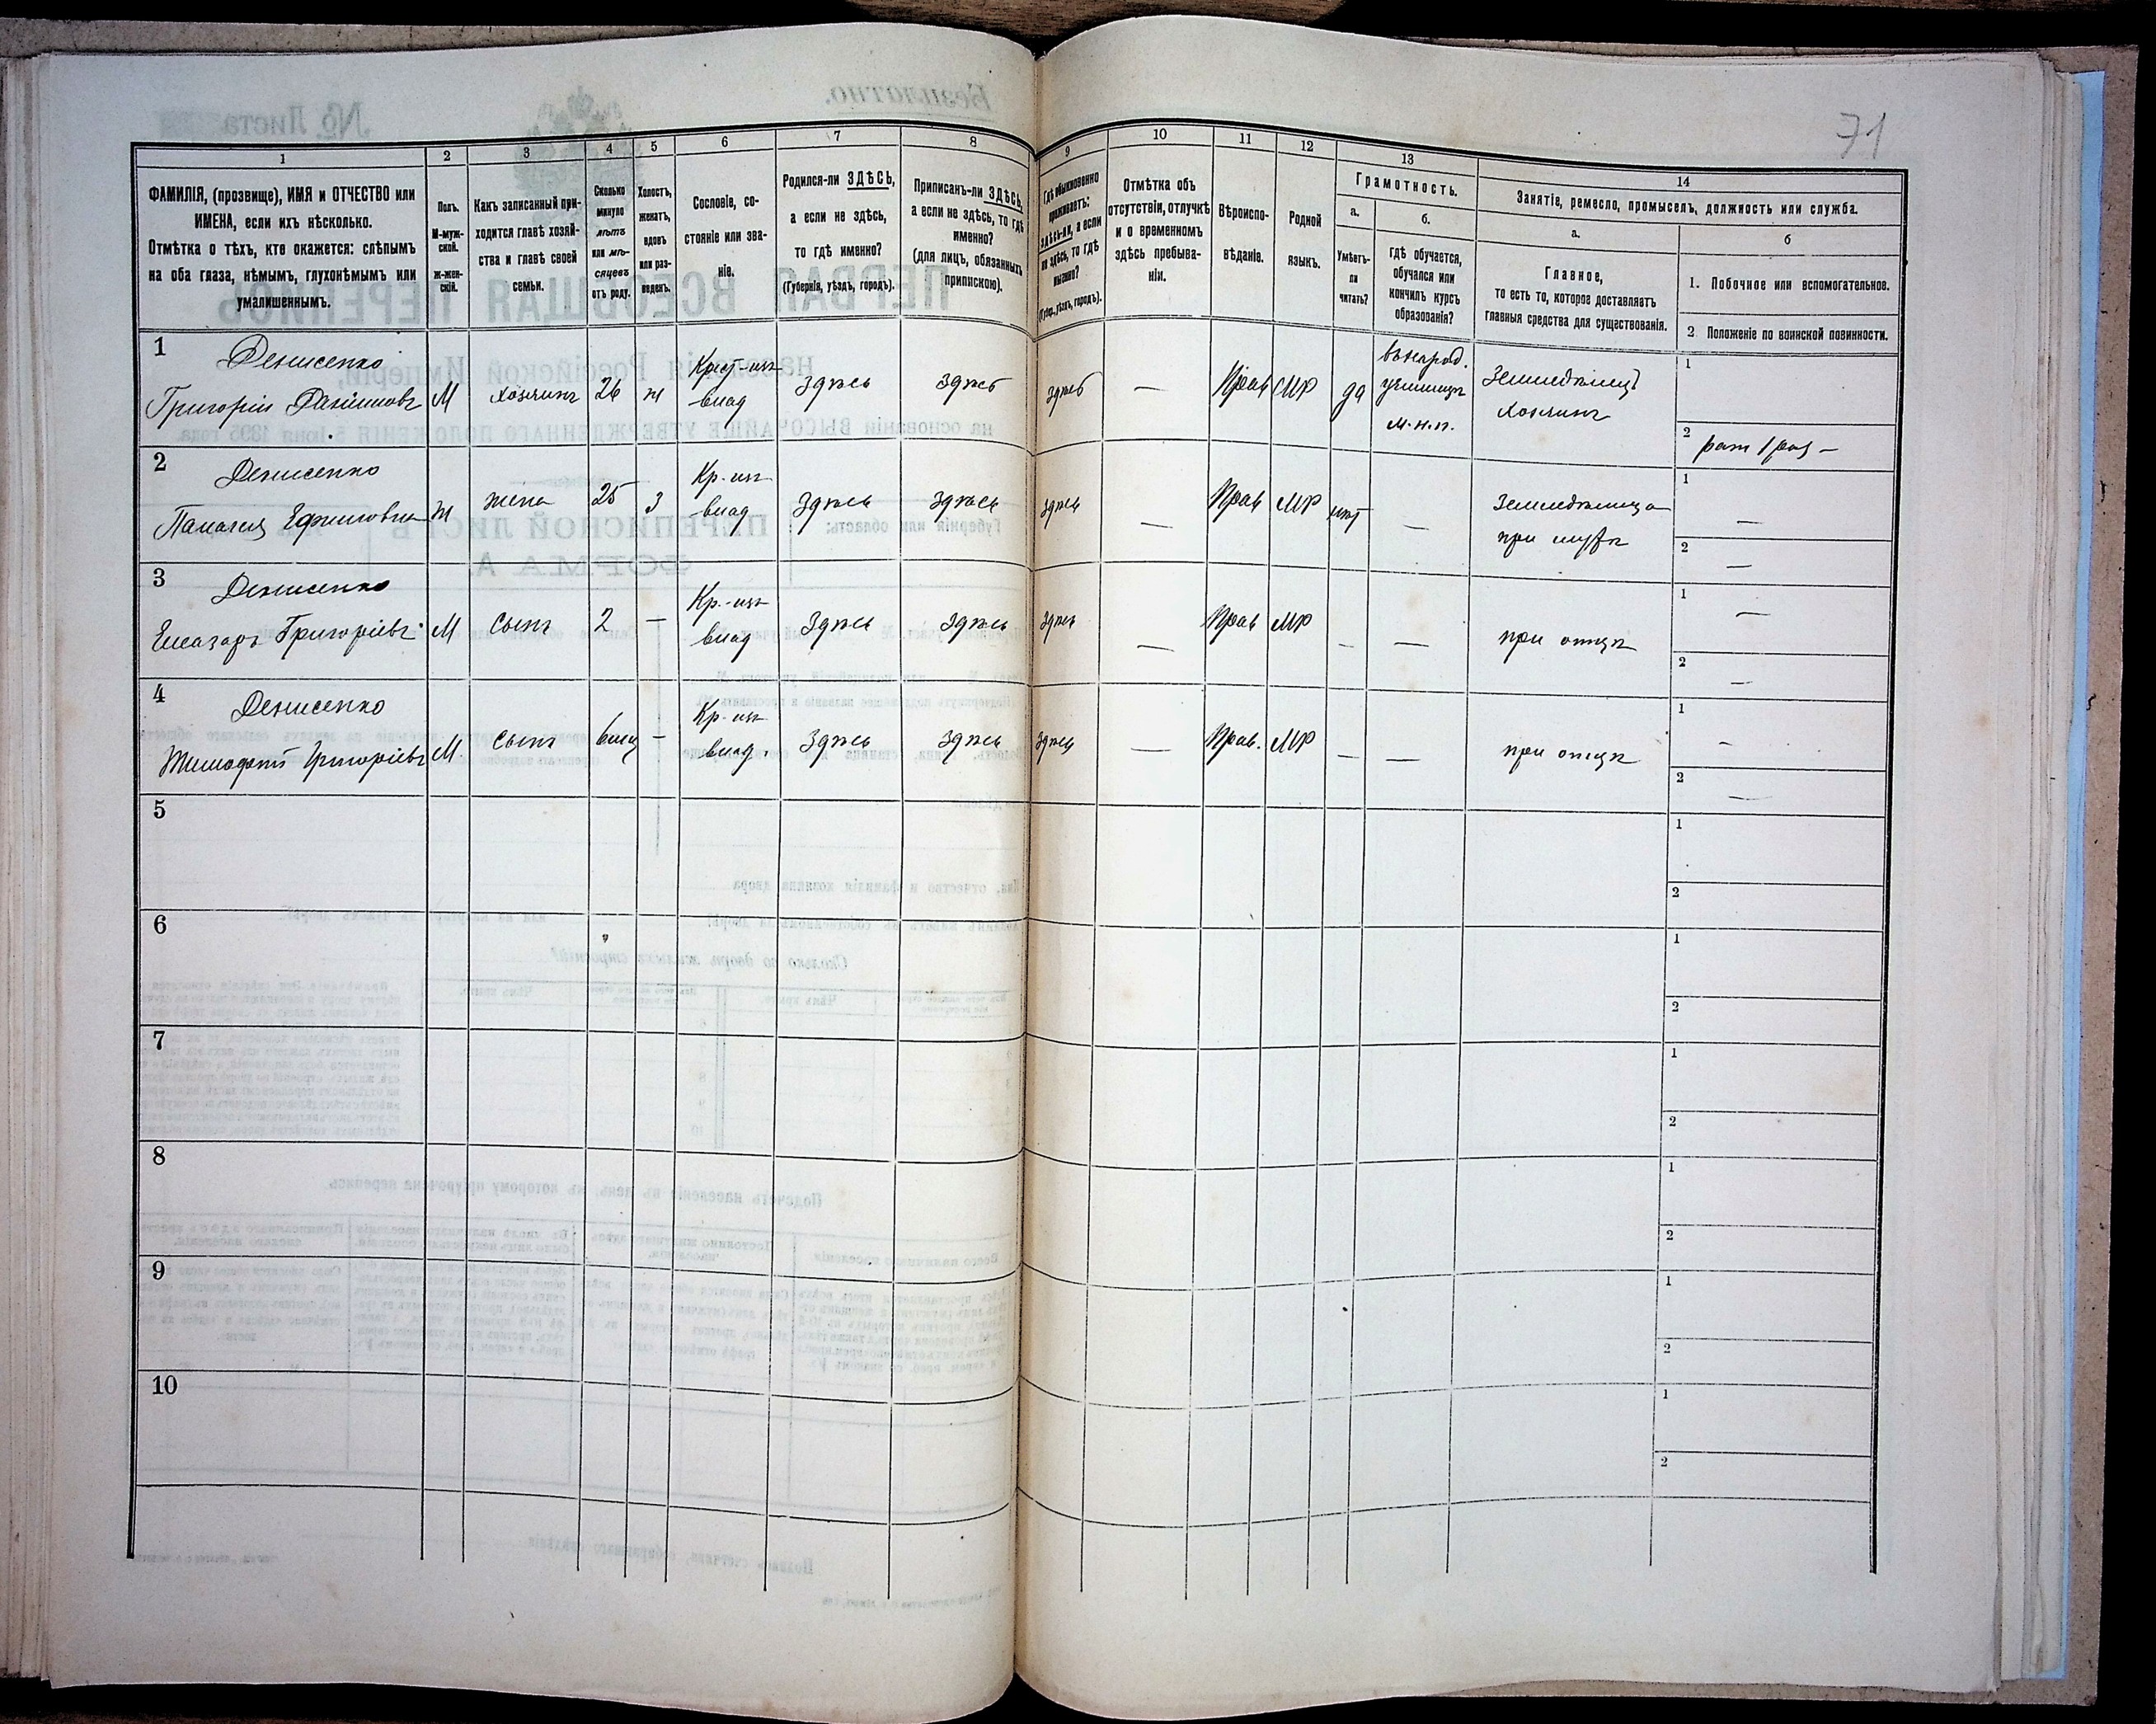 71
1
2
3
4
5
6
7
8
9
10
11
12
13
14
ФАМИЛІЯ, (прозвище), ИМЯ и ОТЧЕСТВО или
ИМЕНА, если ихъ нѣсколько.
Отмѣтка о тѣхъ, кто окажется: слѣпымъ
на оба глаза, нѣмымъ, глухонѣмымъ или
умалишеннымъ.
Полъ.
М-муж-
ской.
Ж-жен-
скій.
Какъ записанный при-
ходится главѣ хозяй-
ства и главѣ своей
семьи.
Сколько
минуло
лѣтъ
или мѣ-
сяцевъ
отъ роду.
Холостъ,
женатъ,
вдовъ
или раз-
веденъ.
Сословіе, со-
стояніе или зва-
ніе.
Родился-ли ЗДѢСЬ,
а если не здѣсь,
то гдѣ именно?
(Губернія, уѣздъ, городъ).
Приписанъ-ли ЗДѢСЬ,
а если не здѣсь, то гдѣ
именно?
(для лицъ, обязанныхъ
припискою).
Гдѣ обыкновенно
проживаетъ:
здѣсь-ли, а если
не здѣсь, то гдѣ
именно?
(Губер., уѣздъ, городъ).
Отмѣтка объ
отсутствіи, отлучкѣ
и о временномъ
здѣсь пребыва-
ніи.
Вѣроиспо-
вѣданіе.
Родной
языкъ.
Грамотность.
а.
Умѣетъ-
ли
читать?
б.
гдѣ обучается,
обучался или
кончилъ курсъ
образованія?
Занятіе, ремесло, промыселъ, должность или служба.
а.
Главное,
то есть то, которое доставляетъ
главныя средства для существованія.
б
1. Побочное или вспомогательное.
2. Положеніе по воинской повинности.
1
Денисенко
Григорій Данииловъ
М
хозяинъ
26
ж
Крест-изъ
влад
здѣсь
здѣсь
здѣсь
—
Прав
МР
да
въ народ.
училищѣ
м.н.п.
Земледѣлец
хозяинъ
1
2
рат 1 раз —
2
Денисенко
Пелагея Ефимовна
Ж
жена
25
з
Кр.-изъ
влад
здѣсь
здѣсь
здѣсь
—
Прав
МР
нѣт
—
Земледѣлица
при мужѣ
1
—
2
—
3
Денисенко
Елеазаръ Григоріевъ
М
сынъ
2
—
Кр.-изъ
влад
здѣсь
здѣсь
здѣсь
—
Прав
МР
—
—
при отцѣ
1
—
2
—
4
Денисенко
Григоріевъ
М.
сынъ
6 мѣс
—
Кр-изъ
влад.
здѣсь
здѣсь
здѣсь
—
Прав.
МР
—
—
при отцѣ
1
—
2
—
5
1
2
6
1
2
7
1
2
8
1
2
9
1
2
10
1
2